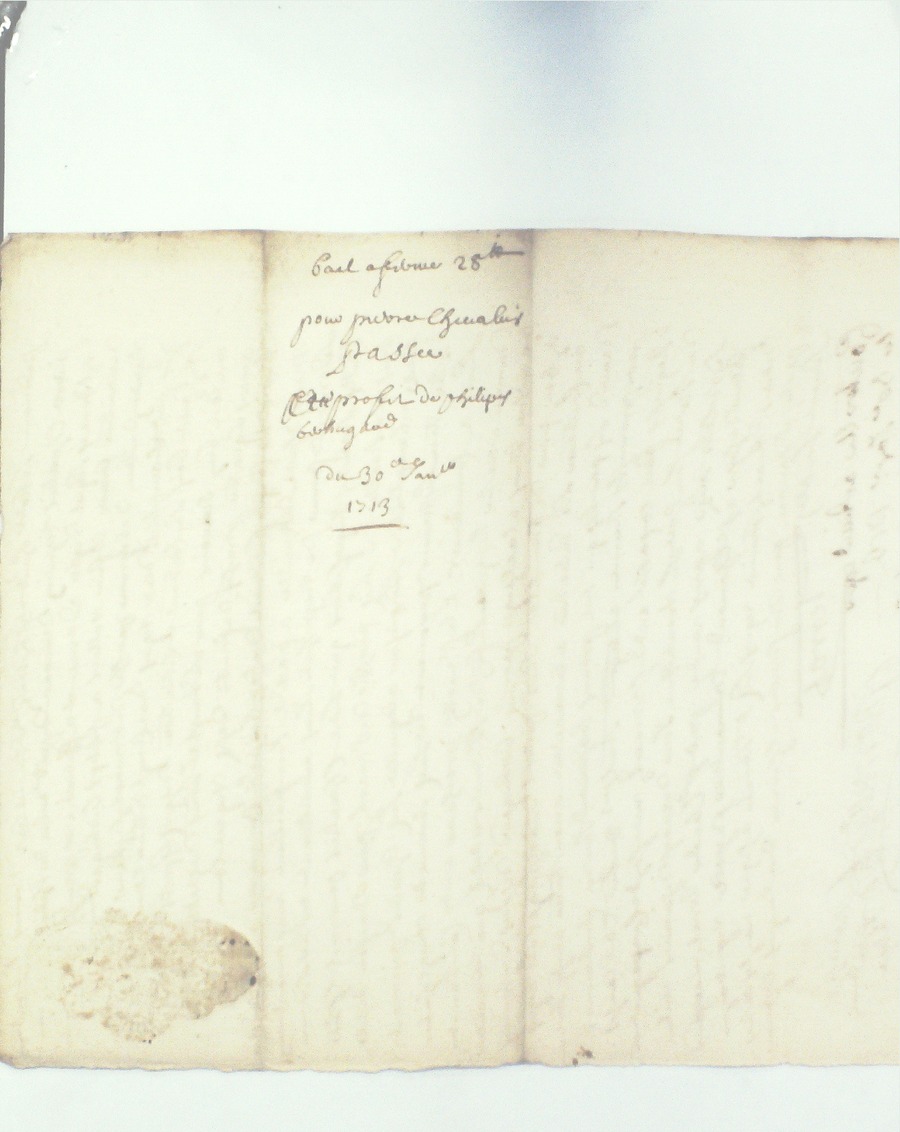 bail a ferme 28 tt
pour pierre Chevalier
passée
profit de philipes
du 30e Janer
1713